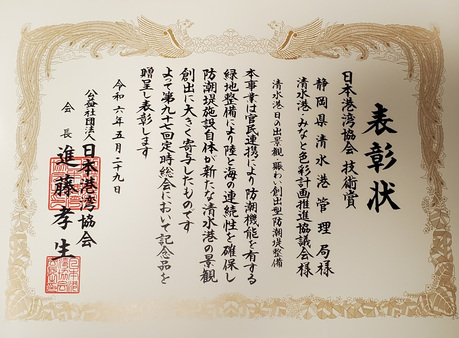 表彰状
日本港湾協会 技術賞
静岡県清水港管理局様
清水港・みなと色彩計画推進協議会様
清水港日の出景観・賑わい創出型防潮堤整備
本事業は官民連携により防潮機能を有する
緑地整備により陸と海の連続性を確保し
防潮堤施設自体が新たな清水港の景観
創出に大きく寄与したものです
よって第九十七回定時総会において記念品を
贈呈し表彰します
令和六年五月二十九日
公益社団法人 日本港湾協会
会長 進藤孝生